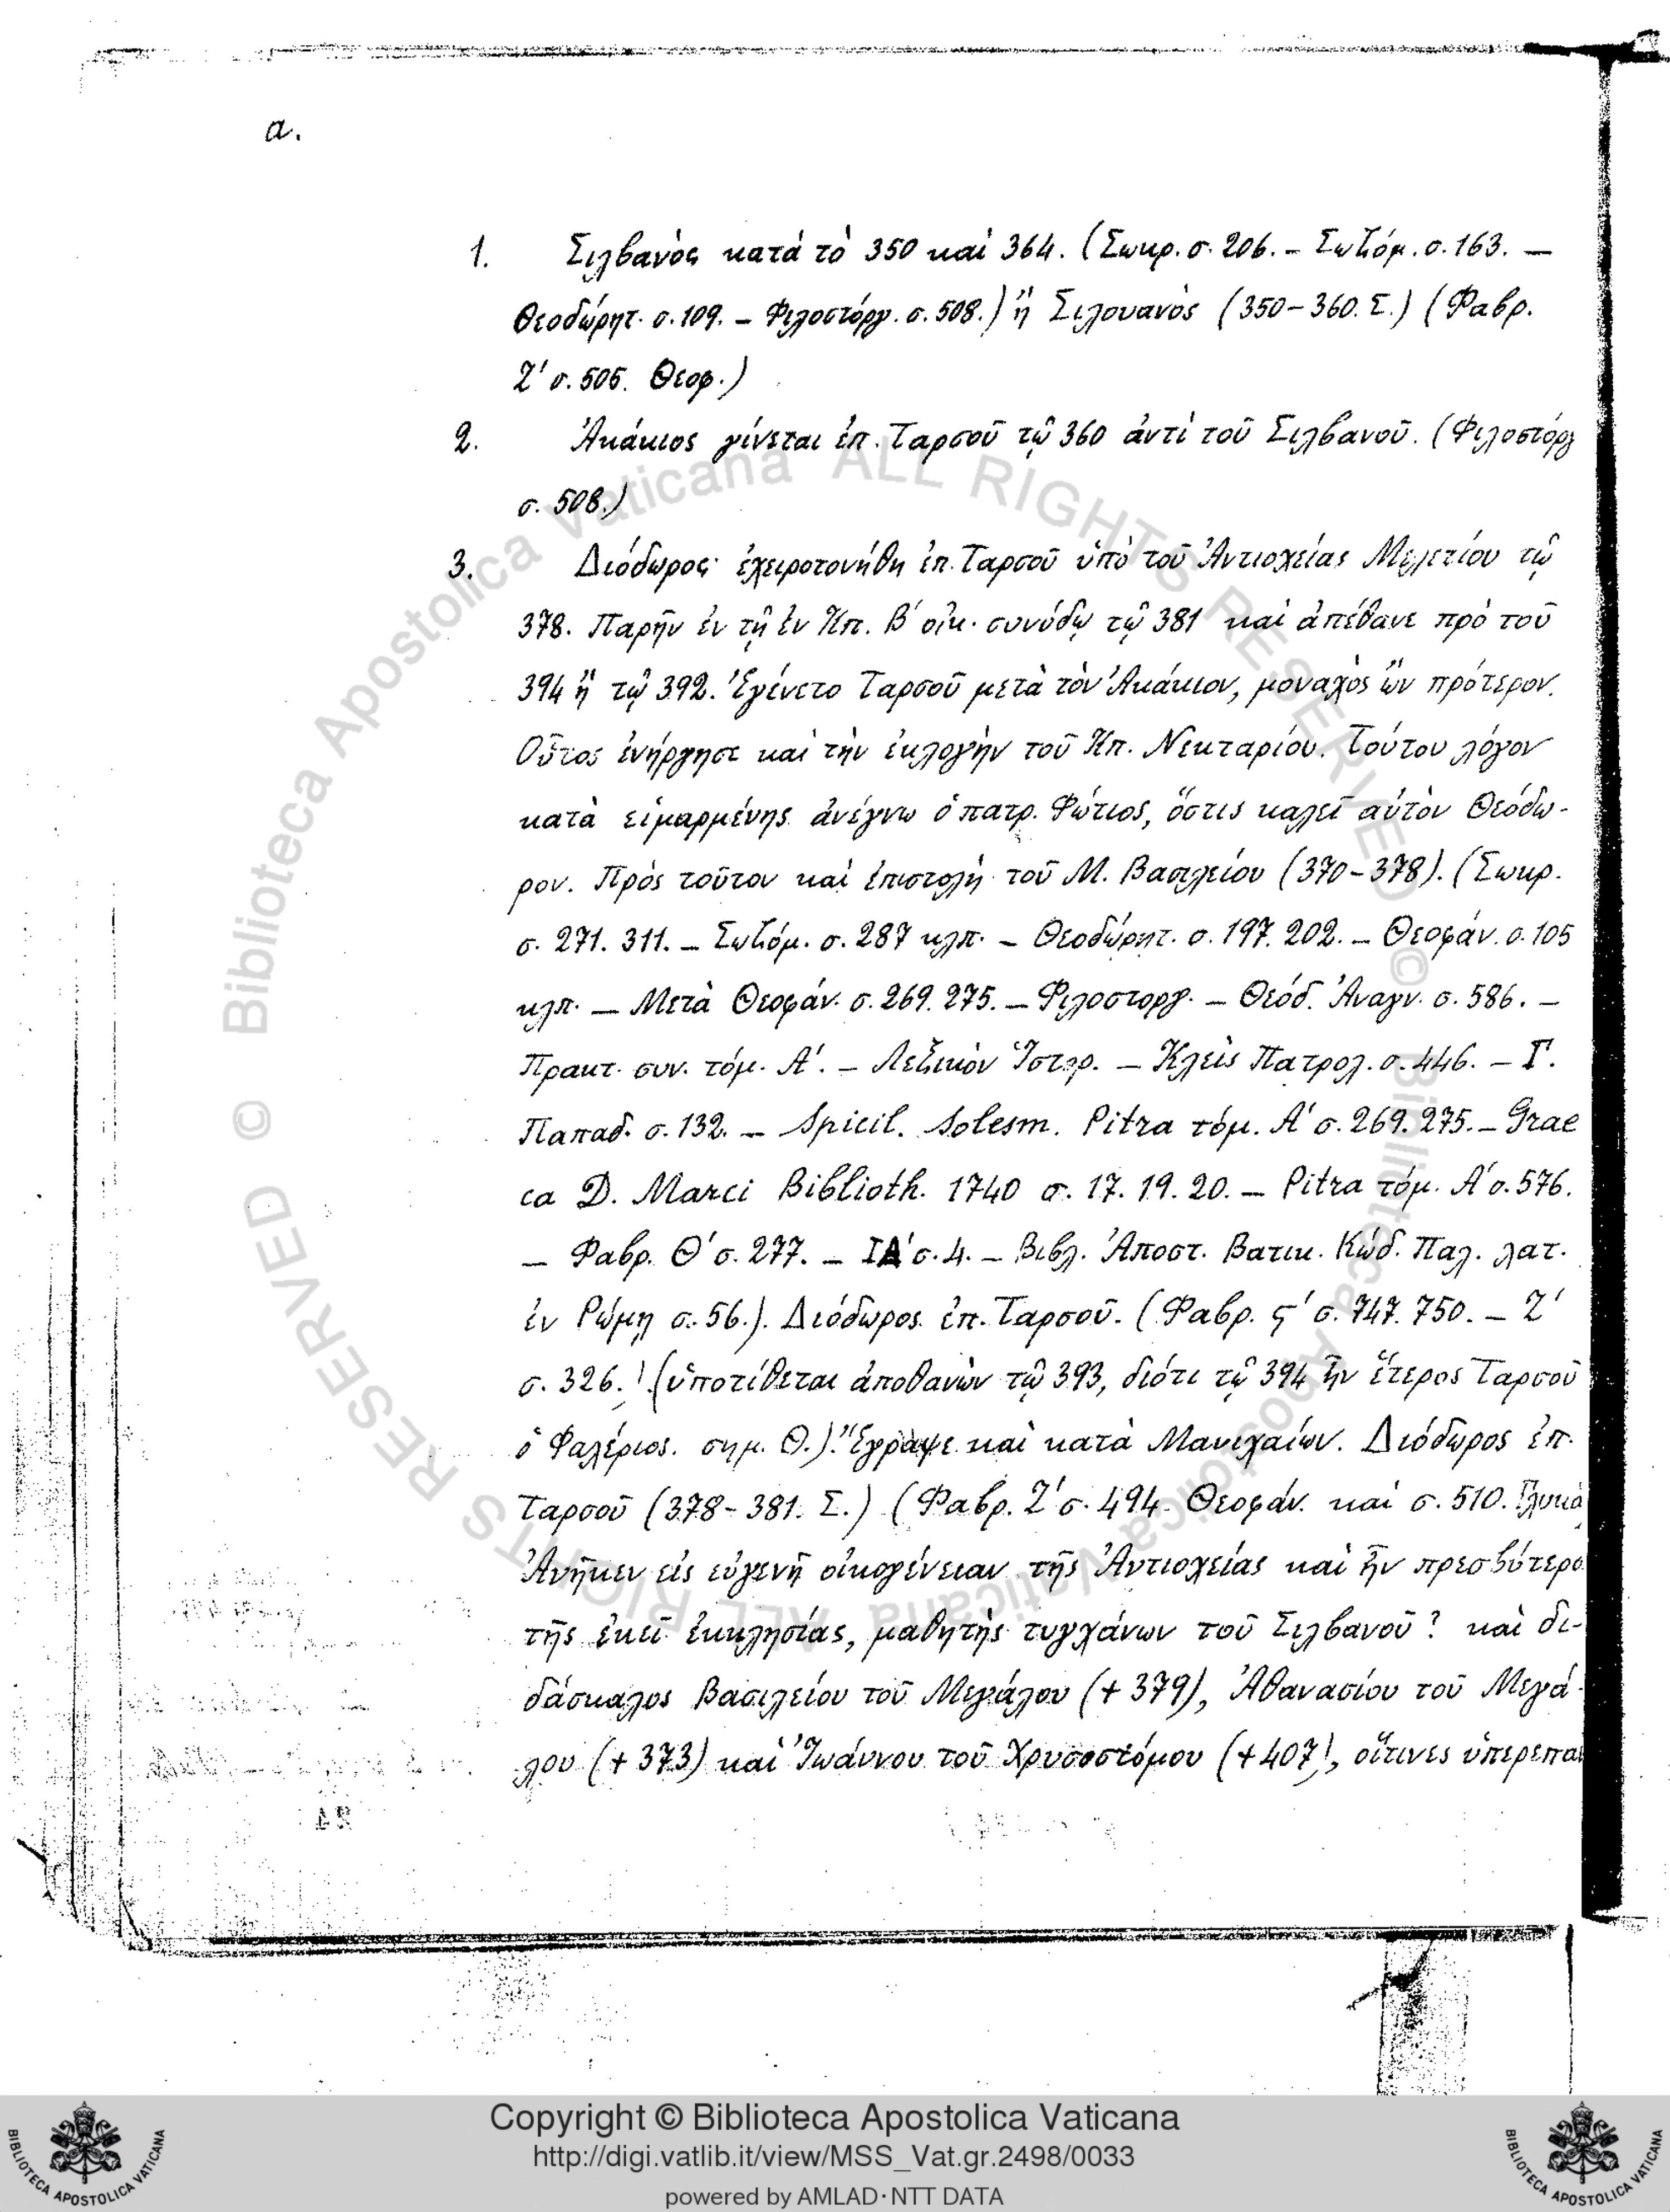 α.
1. Σιλβανὸς κατὰ τὸ 350 καὶ 364. (Σωκρ. σ. 206. – Σωζόμ. σ. 163. –
Θεοδώρητ. σ. 109. – Φιλοστόργ. σ. 508.) ἢ Σιλουανὸς (350–360. Σ.) (Φαβρ.
Ζ′ σ. 505. Θεοφ.)
2. Ἀκάκιος γίνεται ἐπ. Ταρσοῦ τῷ 360 ἀντὶ τοῦ Σιλβανοῦ. (Φιλοστόργ
σ. 508.)
3. Διόδωρος· ἐχειροτονήθη ἐπ. Ταρσοῦ ὑπὸ τοῦ Ἀντιοχείας Μελετίου τῷ
378. Παρῆν ἐν τῇ ἐν Κπ. Β′ οἰκ. συνόδῳ τῷ 381 καὶ ἀπέθανε πρὸ τοῦ
394 ἢ τῷ 392. Ἐγένετο Ταρσοῦ μετὰ τὸν Ἀκάκιον, μοναχὸς ὢν πρότερον.
Οὗτος ἐνήργησε καὶ τὴν ἐκλογὴν τοῦ Κπ. Νεκταρίου. Τούτου λόγον
κατὰ εἱμαρμένης ἀνέγνω ὁ πατρ. Φώτιος, ὅστις καλεῖ αὐτὸν Θεόδω-
ρον. Πρὸς τοῦτον καὶ ἐπιστολὴ τοῦ Μ. Βασιλείου (370–378). (Σωκρ.
σ. 271. 311. – Σωζόμ. σ. 287 κλπ. – Θεοδώρητ. σ. 197. 202. – Θεοφάν. σ. 105
κλπ. – Μετὰ Θεοφάν. σ. 269. 275. – Φιλοστοργ. – Θεόδ. Ἀναγν. σ. 586. –
Πρακτ. συν. τόμ. Α′. – Λεξικὸν Ἱστορ. – Κλεὶς Πατρολ. σ. 446. – Γ.
Παπαδ. σ. 132. – Spicil. Solesm. Pitra τόμ. Α′ σ. 269. 275. – Grae
ca D. Marci Biblioth. 1740 σ. 17. 19. 20. – Pitra τόμ. Α′ σ. 576.
– Φαβρ. Θ′ σ. 277. – ΙΑ′ σ. 4. – Βιβλ. Ἀποστ. Βατικ. Κώδ. Παλ. λατ.
ἐν Ρώμῃ σ. 56.). Διόδωρος ἐπ. Ταρσοῦ. (Φαβρ. ς′ σ. 747. 750. – Ζ′
σ. 326.) (ὑποτίθεται ἀποθανὼν τῷ 393, διότι τῷ 394 ἦν ἕτερος Ταρσοῦ
ὁ Φαλέριος. σημ. Θ.). Ἔγραψε καὶ κατὰ Μανιχαίων. Διόδωρος ἐπ.
Ταρσοῦ (378–381. Σ.) (Φαβρ. Ζ′ σ. 494. Θεοφάν. καὶ σ. 510. Γλυκᾶ
Ἀνῆκεν εἰς εὐγενῆ οἰκογένειαν τῆς Ἀντιοχείας καὶ ἦν πρεσβύτερο
τῆς ἐκεῖ ἐκκλησίας, μαθητὴς τυγχάνων τοῦ Σιλβανοῦ? καὶ δι-
δάσκαλος Βασιλείου τοῦ Μεγάλου (+ 379), Ἀθανασίου τοῦ Μεγά-
λου (+ 373) καὶ Ἰωάννου τοῦ Χρυσοστόμου (+ 407), οἵτινες ὑπερεπαι
© Biblioteca Apostolica Vaticana ALL RIGHTS RESERVED © Biblioteca Apostolica Vaticana ALL RIGHTS RESERVED
Copyright © Biblioteca Apostolica Vaticana
http://digi.vatlib.it/view/MSS_Vat.gr.2498/0033
powered by AMLAD·NTT DATA
BIBLIOTECA APOSTOLICA VATICANA
BIBLIOTECA APOSTOLICA VATICANA